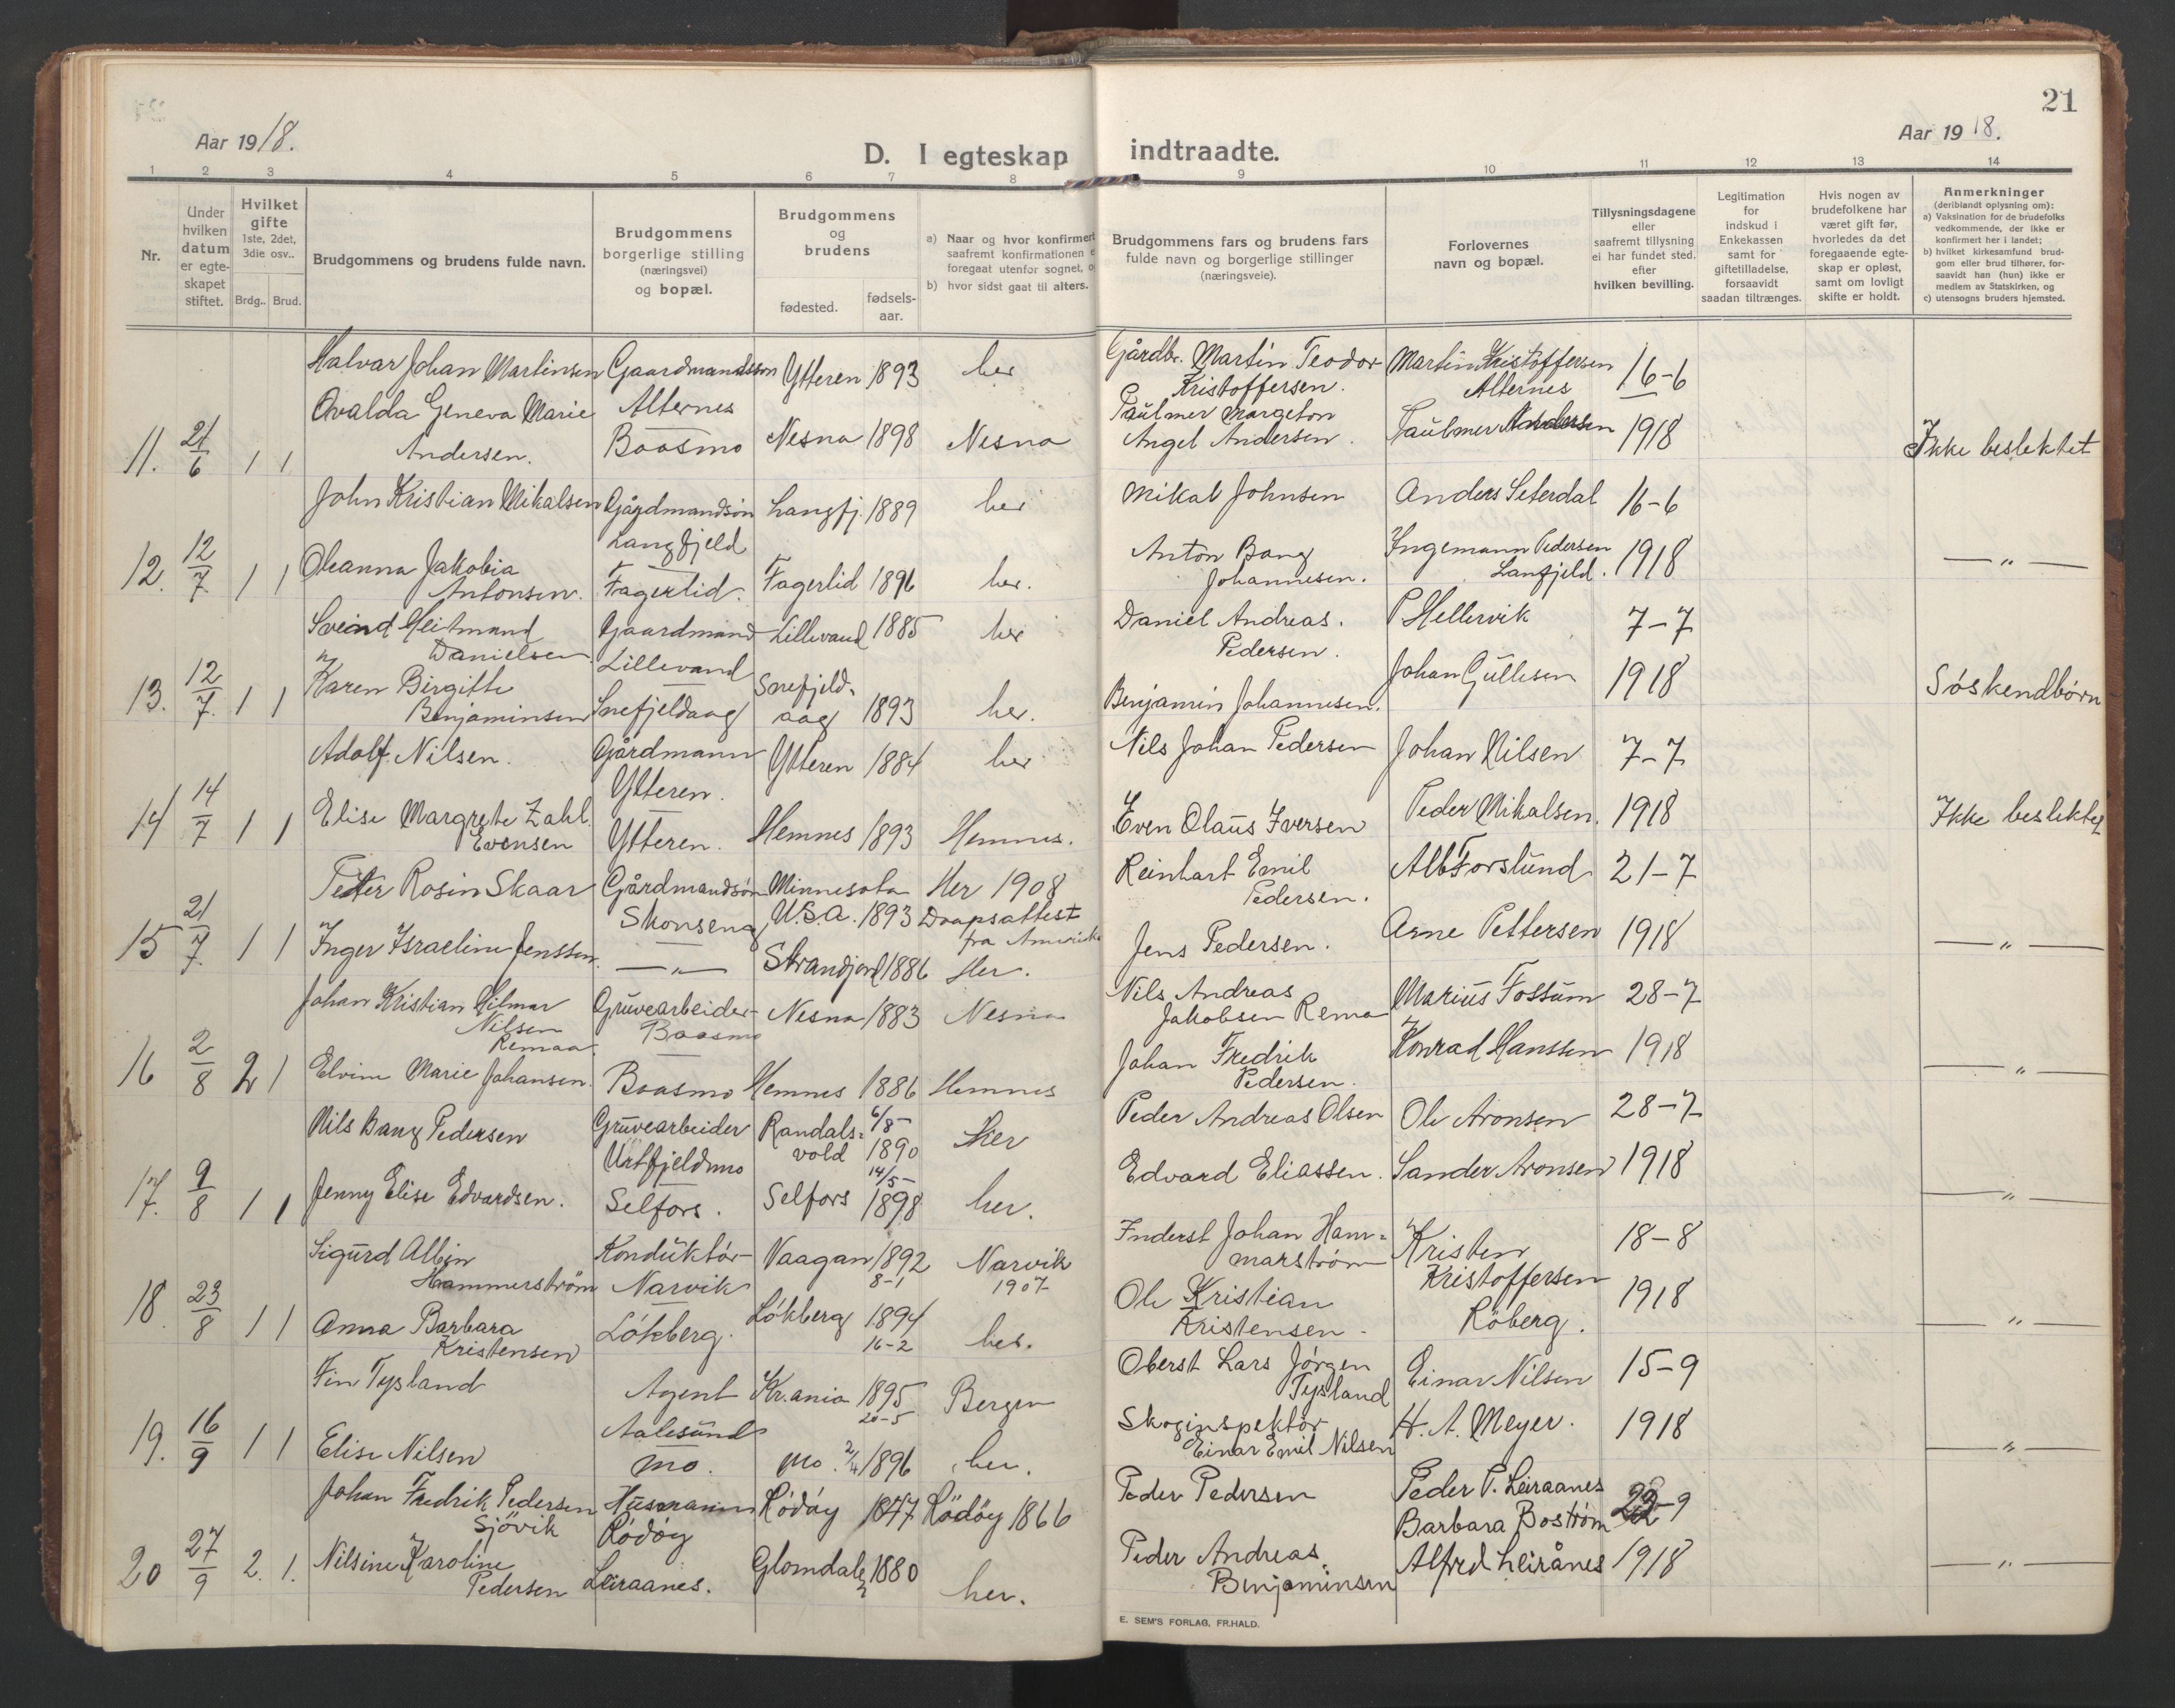 21
Aar 1918.
D. I egteskap indtraadte.
Aar 1918.
1 2 3 4 5 6 7 8 9 10 11 12 13 14
Nr.
Under hvilken datum er egteskapet stiftet.
Hvilket gifte 1ste, 2det, 3die osv..
Brdg.. Brud.
Brudgommens og brudens fulde navn.
Brudgommens borgerlige stilling (næringsvei) og bopæl.
Brudgommens og brudens
fødested. fødselsaar.
a) Naar og hvor konfirmert saafremt konfirmationen e foregaat utenfor sognet, o
b) hvor sidst gaat til alters.
Brudgommens fars og brudens fars fulde navn og borgerlige stillinger (næringsveie).
Forlovernes navn og bopæl.
Tillysningsdagene eller saafremt tillysning ei har fundet sted, efter hvilken bevilling.
Legitimation for indskud i Enkekassen samt for giftetilladelse, forsaavidt saadan tiltrænges.
Hvis nogen av brudefolkene har været gift før, hvorledes da det foregaaende egteskap er opløst, samt om lovligt skifte er holdt.
Anmerkninger (deriblandt oplysning om):
a) Vaksination for de brudefolks vedkommende, der ikke er konfirmert her i landet;
b) hvilket kirkesamfund brudgom eller brud tilhører, forsaavidt han (hun) ikke er medlem av Statskirken, og
c) utensogns bruders hjemsted.
Halvar Johan Martinsen Gaardmandssøn Ytteren 1893 her Gårdbr. Martin Teodor Kristoffersen. Martin Kristoffersen Alternes 16-6
Alternes
11. 21/6 1 1 Ovalda Geneva Marie Andersen. Baasmo Nesna 1898 Nesna Paulmer Margeton Angel Andersen. Paulmer Andersen 1918 Ikke beslektet
John Kristian Mikalsen Gårdmandsøn Langfj. 1889 her Mikal Johnsen Anders Seterdal 16-6
Langfjeld
12. 12/7 1 1 Oleanna Jakobia Antonsen. Fagerlid. Fagerlid 1896 her. Anton Bang Johannesen. Ingemann Pedersen Lanfjeld. 1918 — " —
Sveind Heitmand Danielsen Gaardmand Lillevand 1885 her Daniel Andreas. Pedersen. P Hellervik 7-7
Lillevand
13. 12/7 1 1 Karen Birgitte Benjaminsen Snefjeldaag Snefjeldaag 1893 her. Benjamin Johannesen. Johan Gullesen 1918 Søskendbørn
Adolf Nilsen. Gårdmann Ytteren 1884 her Nils Johan Pedersen Johan Nilsen 7-7
Ytteren.
14 14/7 1 1 Elise Margrete Zahl. Evensen Ytteren. Hemnes 1893 Hemnes. Even Olaus Iversen Peder Mikalsen. 1918 Ikke beslektet
Peter Rosin Skaar Gårdmandsøn Minnesota U.S.a. 1893 Her 1908 Reinhart Emil Pedersen. Alb Forslund 21-7
Skonseng Daapsattest fra Amerika
15 21/7 1 1 Inger Israeline Jenssen. — " — Strandjord 1886 Her. Jens Pedersen. Arne Pettersen 1918 — " —
Johan Kristian Hilmar Nilsen Remaa. Gruvearbeider Nesna 1883 Nesna Nils Andreas Jakobsen Rema Marius Fossum 28-7
Baasmo
16 2/8 2 1 Elvine Marie Johansen. Baasmo Hemnes 1886 Hemnes Johan Fredrik Pedersen. Konrad Hanssen 1918 — " —
Nils Bang Pedersen Gruvearbeider Randalsvold 6/8 1890 Her Peder Andreas Olsen Ole Aronsen 28-7
Urtfjeldmo
17. 9/8 1 1 Jenny Elise Edvardsen. Selfors. Selfors 14/5 1898 her. Edvard Eliassen. Sander Aronsen 1918 — " —
Sigurd Albin Hammerström Konduktör Vaagan 1892 8-1 Narvik 1907 Inderst Johan Hammarstrøm Kristen Kristoffersen 18-8
Narvik
18. 23/8 1 1 Anna Barbara Kristensen Løkberg. Løkberg 1894 16-2 her. Ole Kristian Kristensen. Röberg. 1918 — " —
Fin Tysland Agent Kr.ania 1895 20-5 Bergen Oberst Lars Jörgen Tysland Einar Nilsen 15-9
Aalesund
19. 16/9 1 1 Elise Nilsen Mo. Mo. 2/4 1896 her. Skoginspektør Einar Emil Nilsen H. A. Meyer. 1918 — " —
Johan Fredrik Pedersen Sjövik Husmann Rödöy 1847 Rödöy 1866 Peder Pedersen Peder P. Leiraanes 22-9
Rödöy Barbara Boström
20 27/9 2. 1. Nilsine Karoline Pedersen Leiraanes. Glomdal 1880 her. Peder Andreas Benjaminsen Alfred Leirånes 1918 — " —
E. SEM'S FORLAG, FR.HALD.